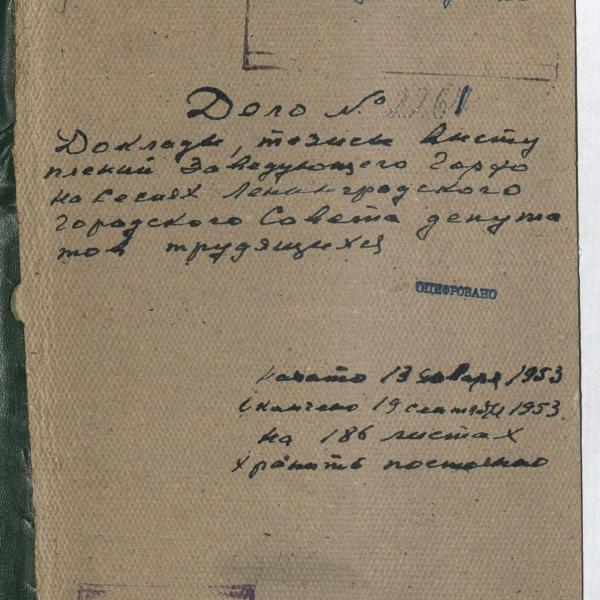 Дело № 2261
Доклады, тезисы высту
плений Заведующего Горфо
на сесиях Ленинградского
городского Совета депута
тов трудящихся
ОЦИФРОВАНО
начато 13 января 1953
окончено 19 сентября 1953.
на 186 листах
хранить постоянно